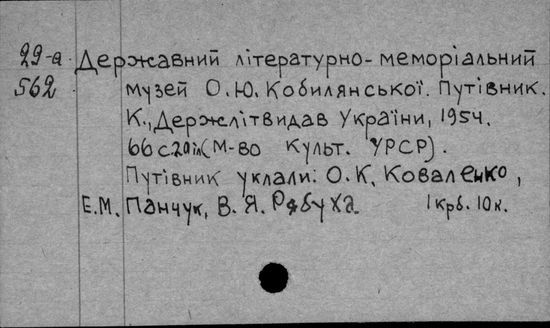 29-а Державний літературно-меморіальний
562 музей О.Ю. Кобилянської. Путівник.
К., Держлітвидав України, 1954.
66с. (М-во культ. УРСР).
Путівник уклали: О.К. Коваленко,
Е.М. Панчук, В.Я. Рябуха. 1 крб. 10 к.